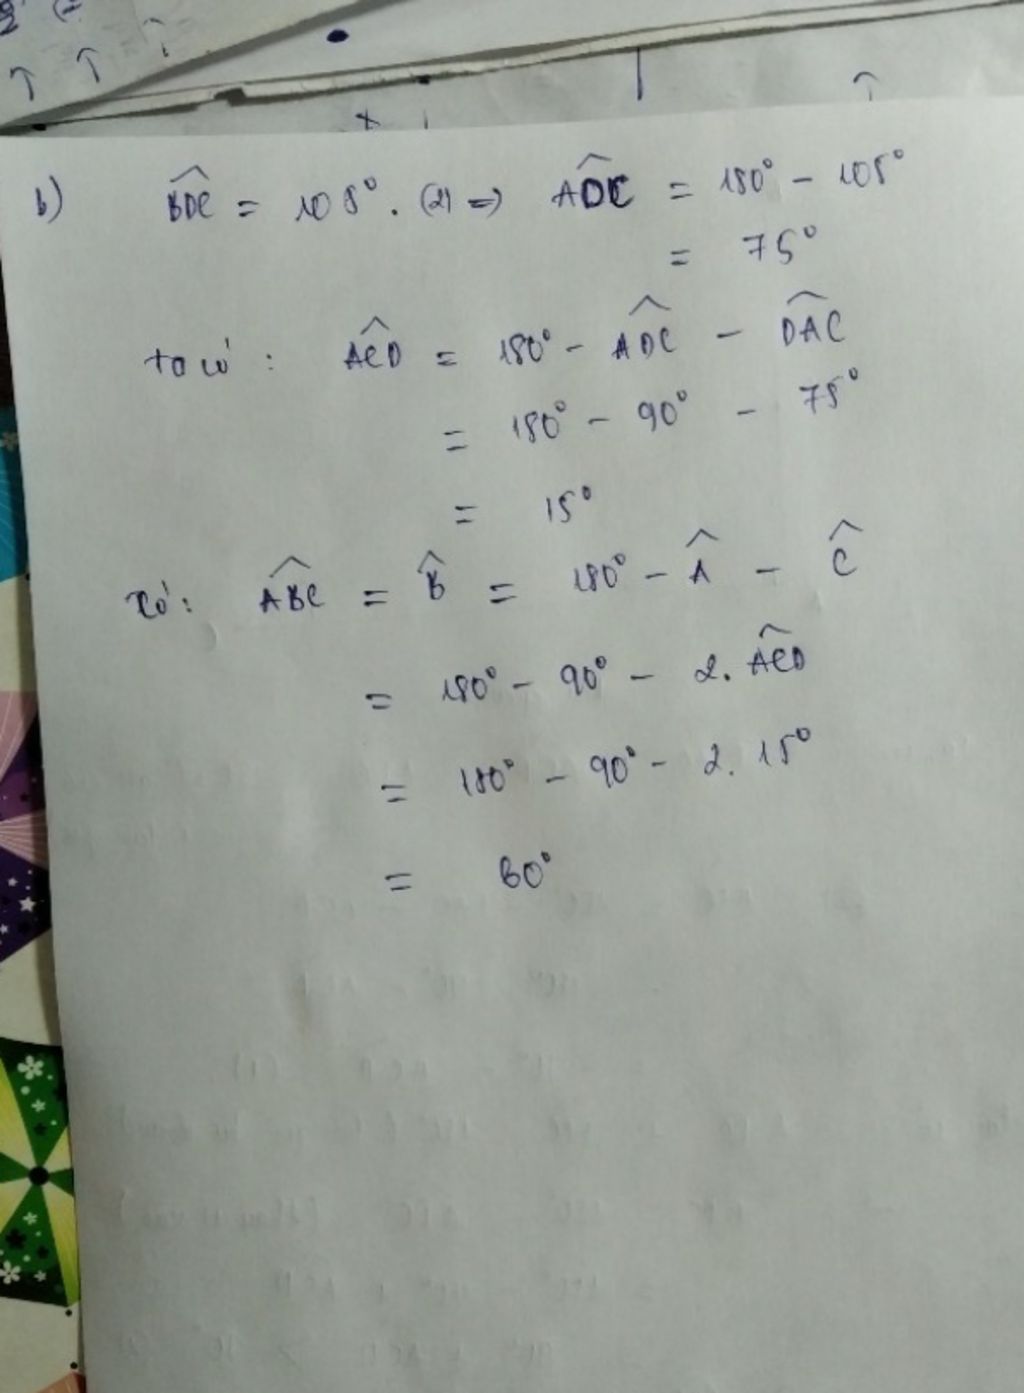 b) BDC = 105°. (2) => ADC = 180° - 105°
= 75°
ta có : ACD = 180° - ADC - DAC
= 180° - 90° - 75°
= 15°
Có: ABC = B = 180° - A - C
= 180° - 90° - 2. ACD
= 180° - 90° - 2. 15°
= 60°